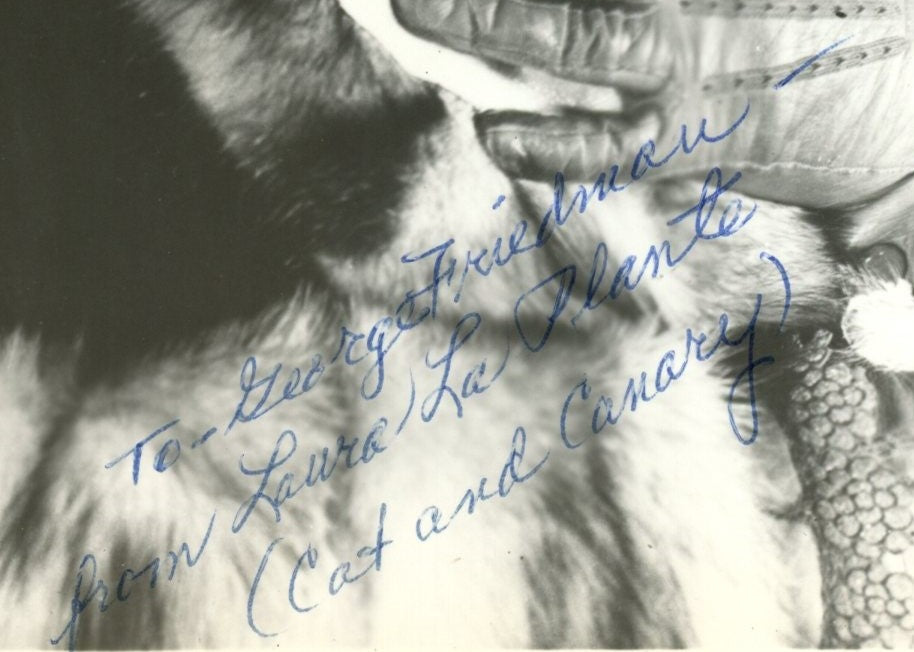 To - George Friedman -
from Laura La Plante
(Cat and Canary)